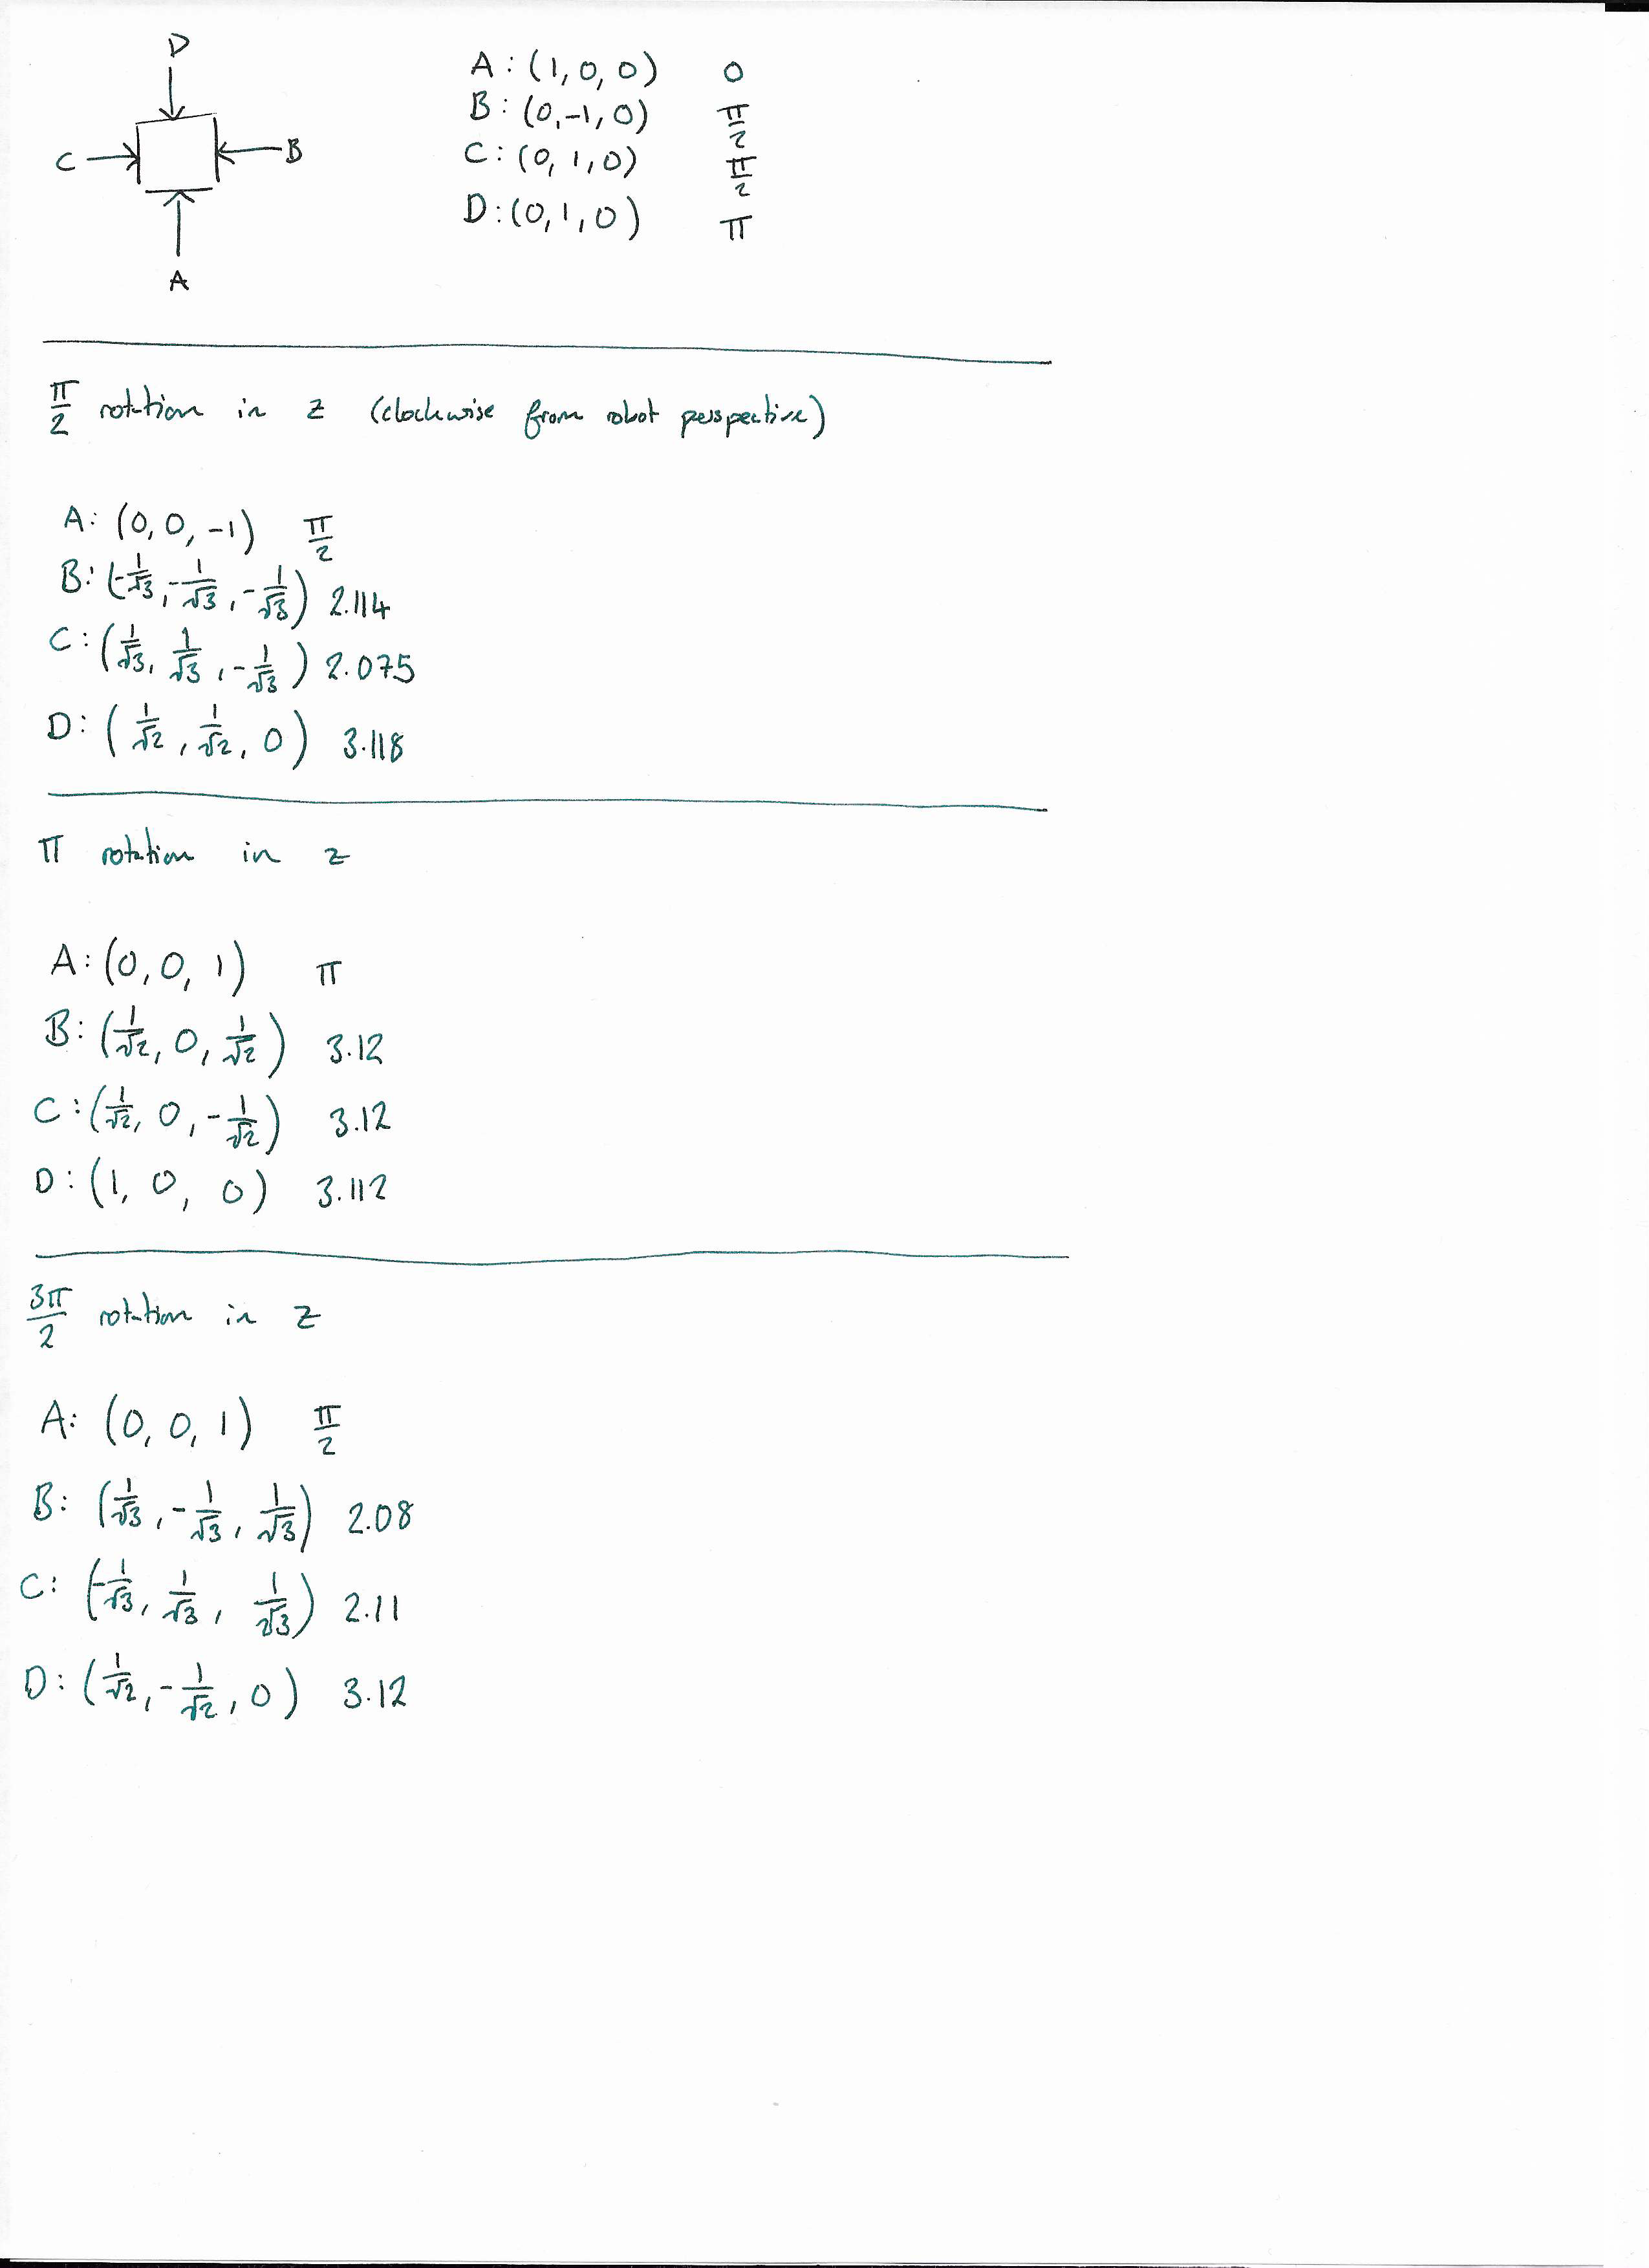 D
C
B
A
A: (1, 0, 0) 0
B: (0, -1, 0) π/2
C: (0, 1, 0) π/2
D: (0, 1, 0) π
π/2 rotation in z (clockwise from robot perspective)
A: (0, 0, -1) π/2
B: (-1/√3, -1/√3, -1/√3) 2.114
C: (1/√3, 1/√3, -1/√3) 2.075
D: (1/√2, 1/√2, 0) 3.118
π rotation in z
A: (0, 0, 1) π
B: (1/√2, 0, 1/√2) 3.12
C: (1/√2, 0, -1/√2) 3.12
D: (1, 0, 0) 3.112
3π/2 rotation in z
A: (0, 0, 1) π/2
B: (1/√3, -1/√3, 1/√3) 2.08
C: (-1/√3, 1/√3, 1/√3) 2.11
D: (1/√2, -1/√2, 0) 3.12